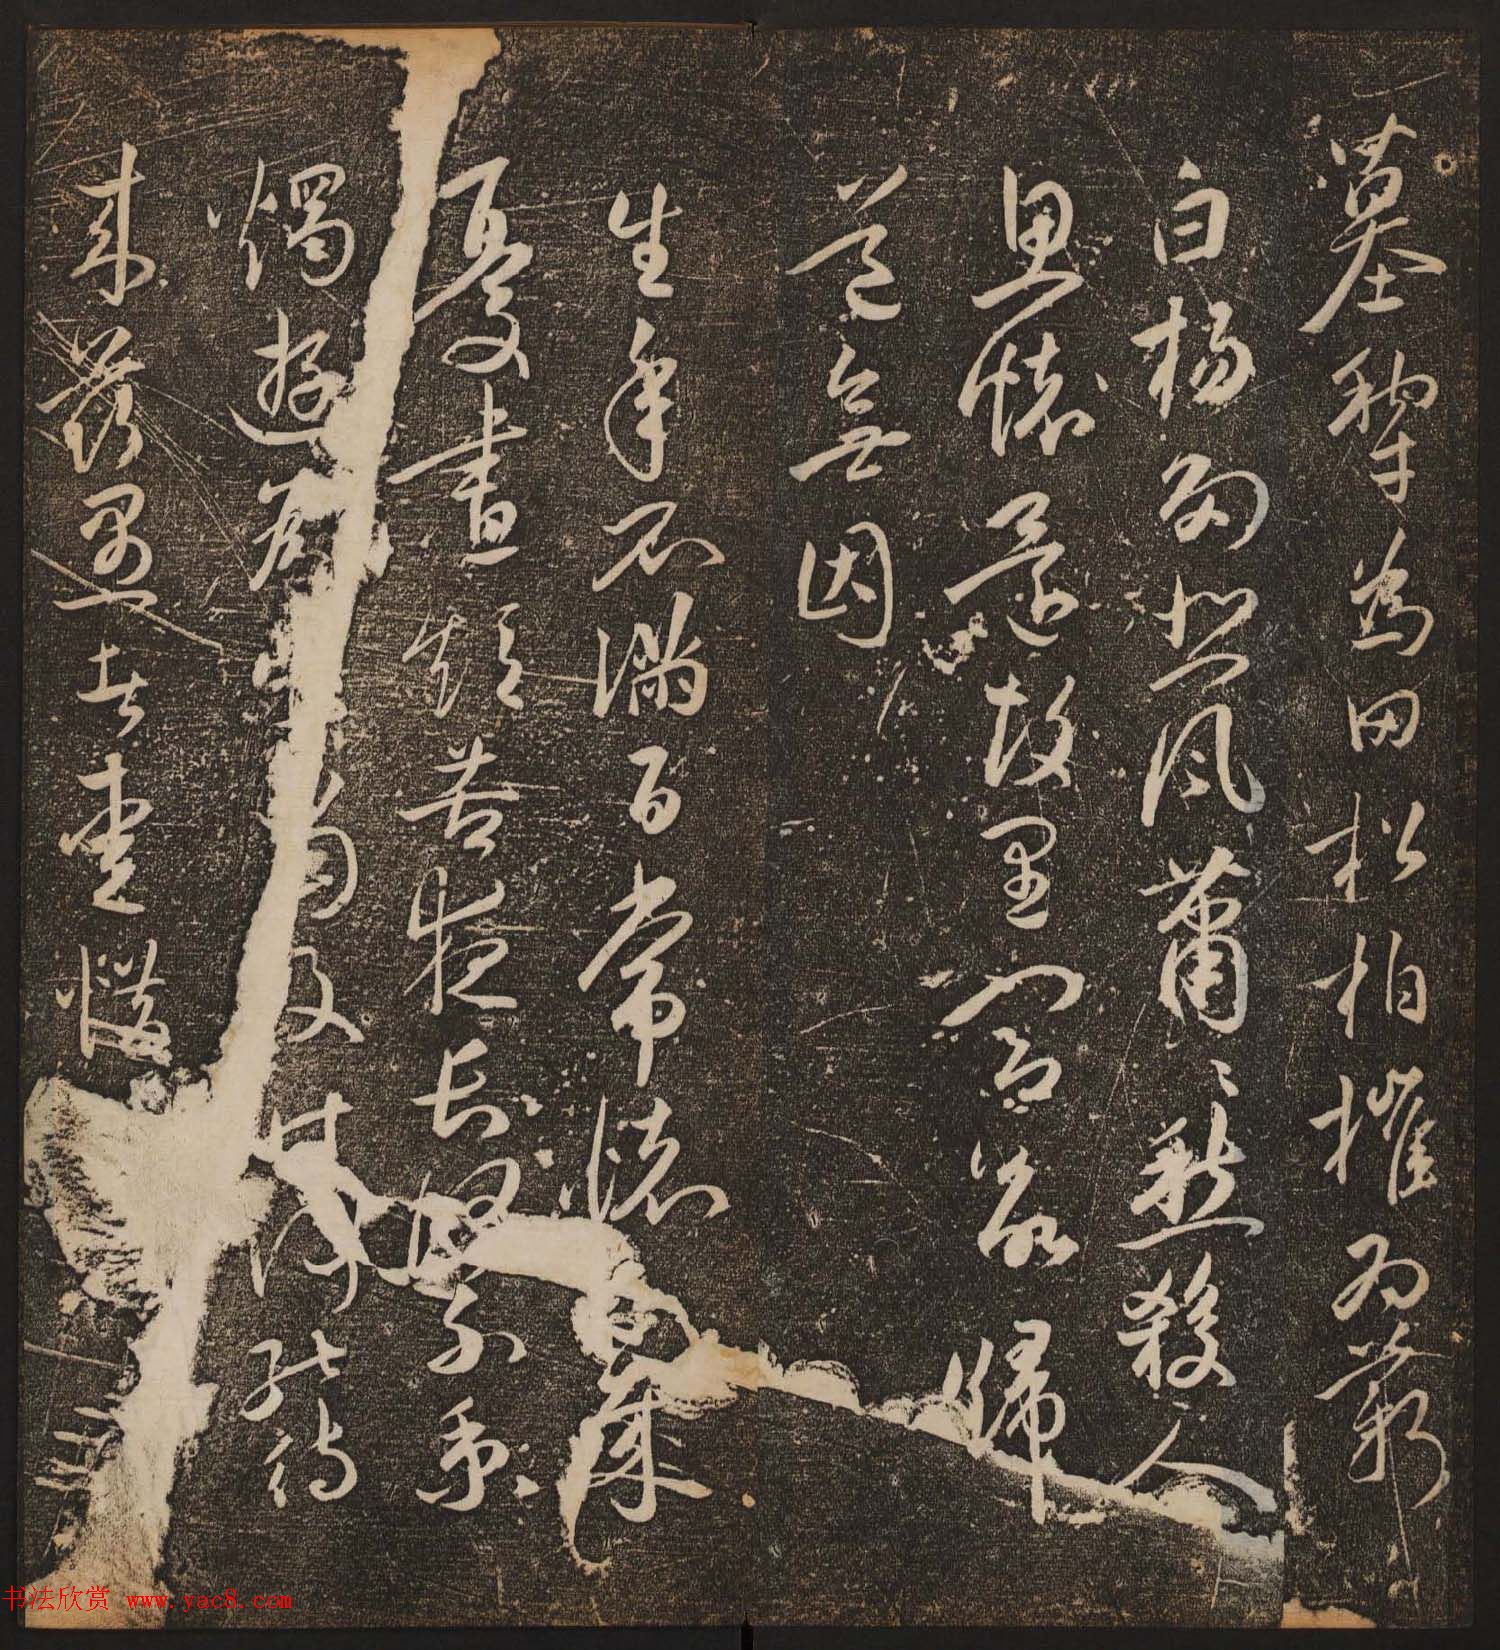 墓犁為田松柏摧為薪
白楊多悲風蕭〻愁殺人
思懷還故里閭欲歸
道無因
生年不滿百常懷千歲
憂晝短苦夜長何不秉
燭遊為樂當及時何能待
來茲愚者愛惜
书法欣赏 www.yac8.com